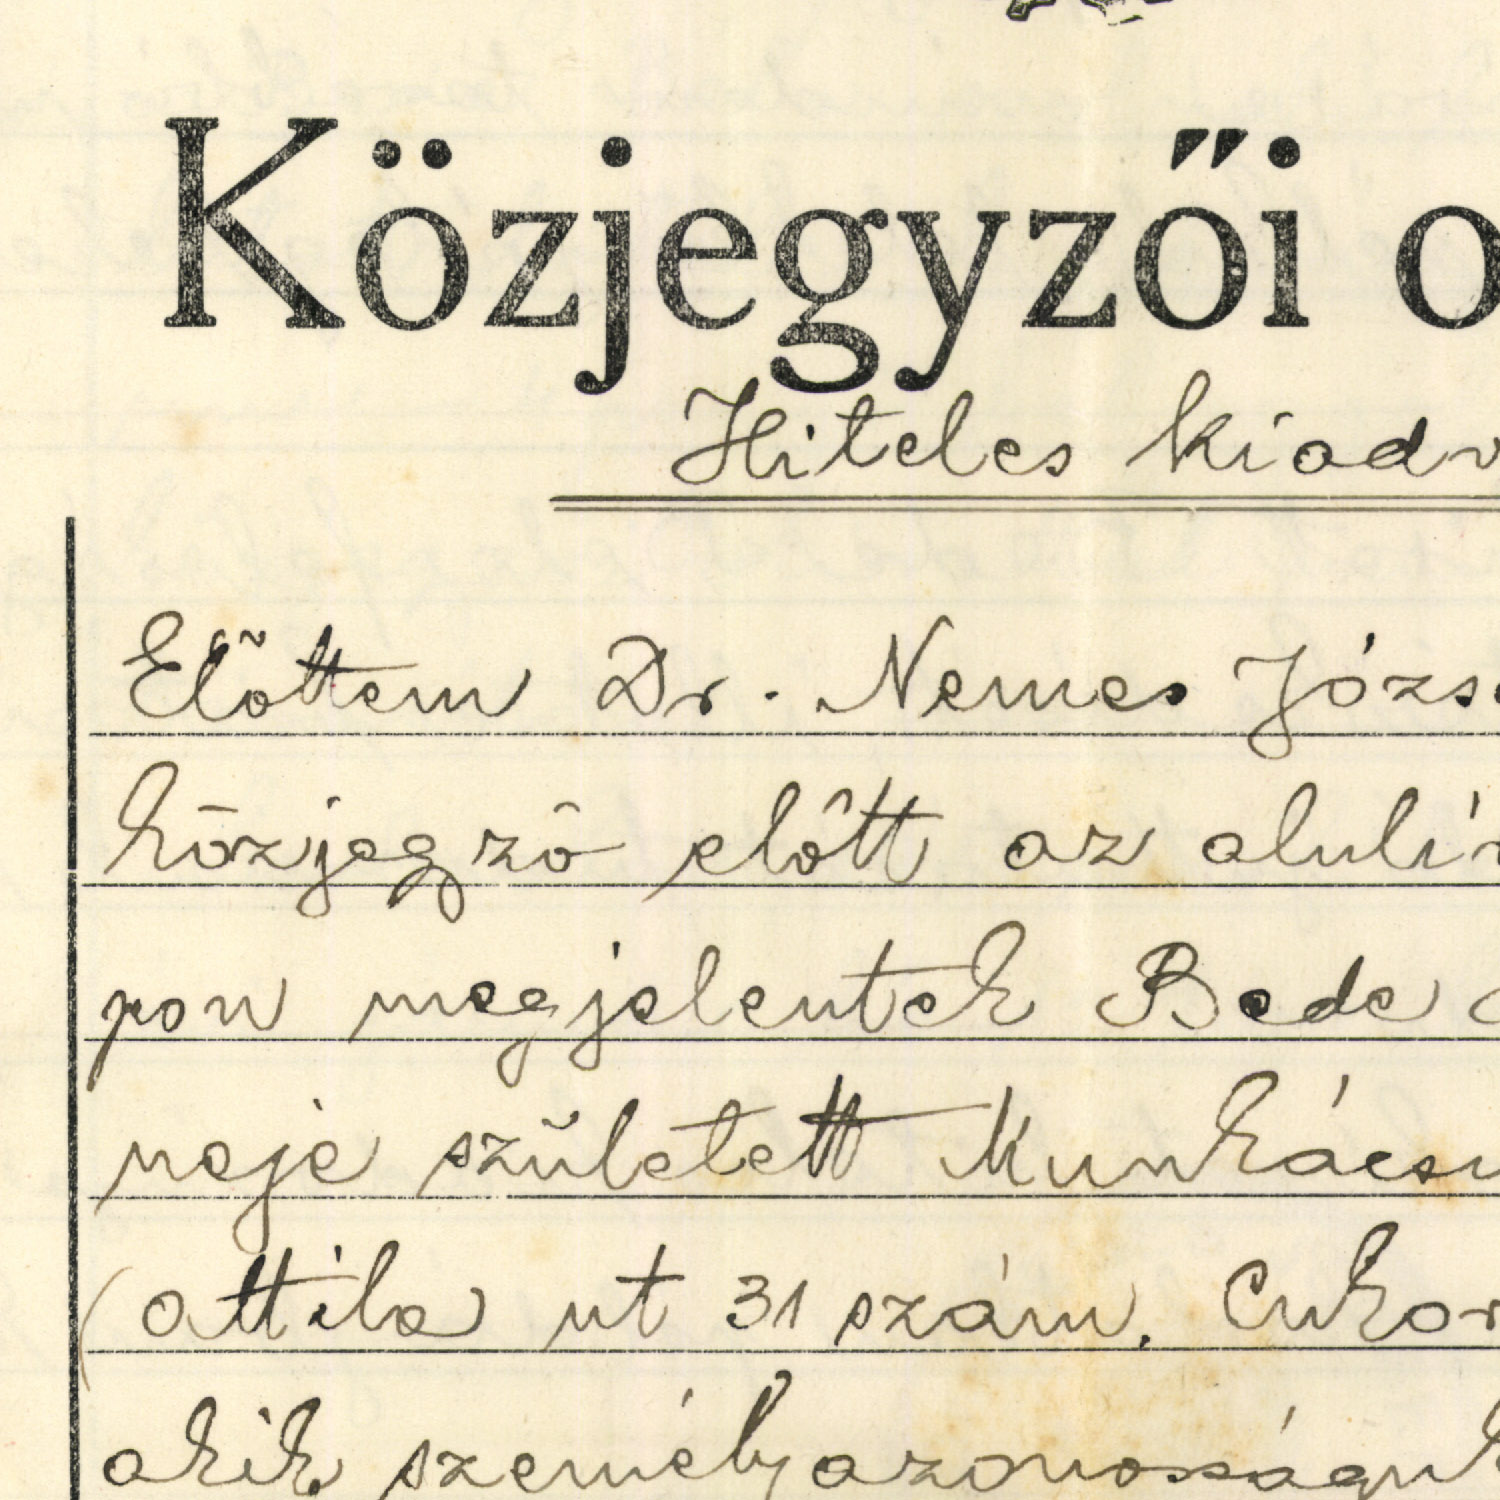 Közjegyzői o
Hiteles kiadv
Előttem Dr. Nemes Józse
közjegyző előtt az alulír
pon megjelentek Bede
neje született Munkácsi
(Attila ut 31 szám. Cukor
akik személyazonosságuk